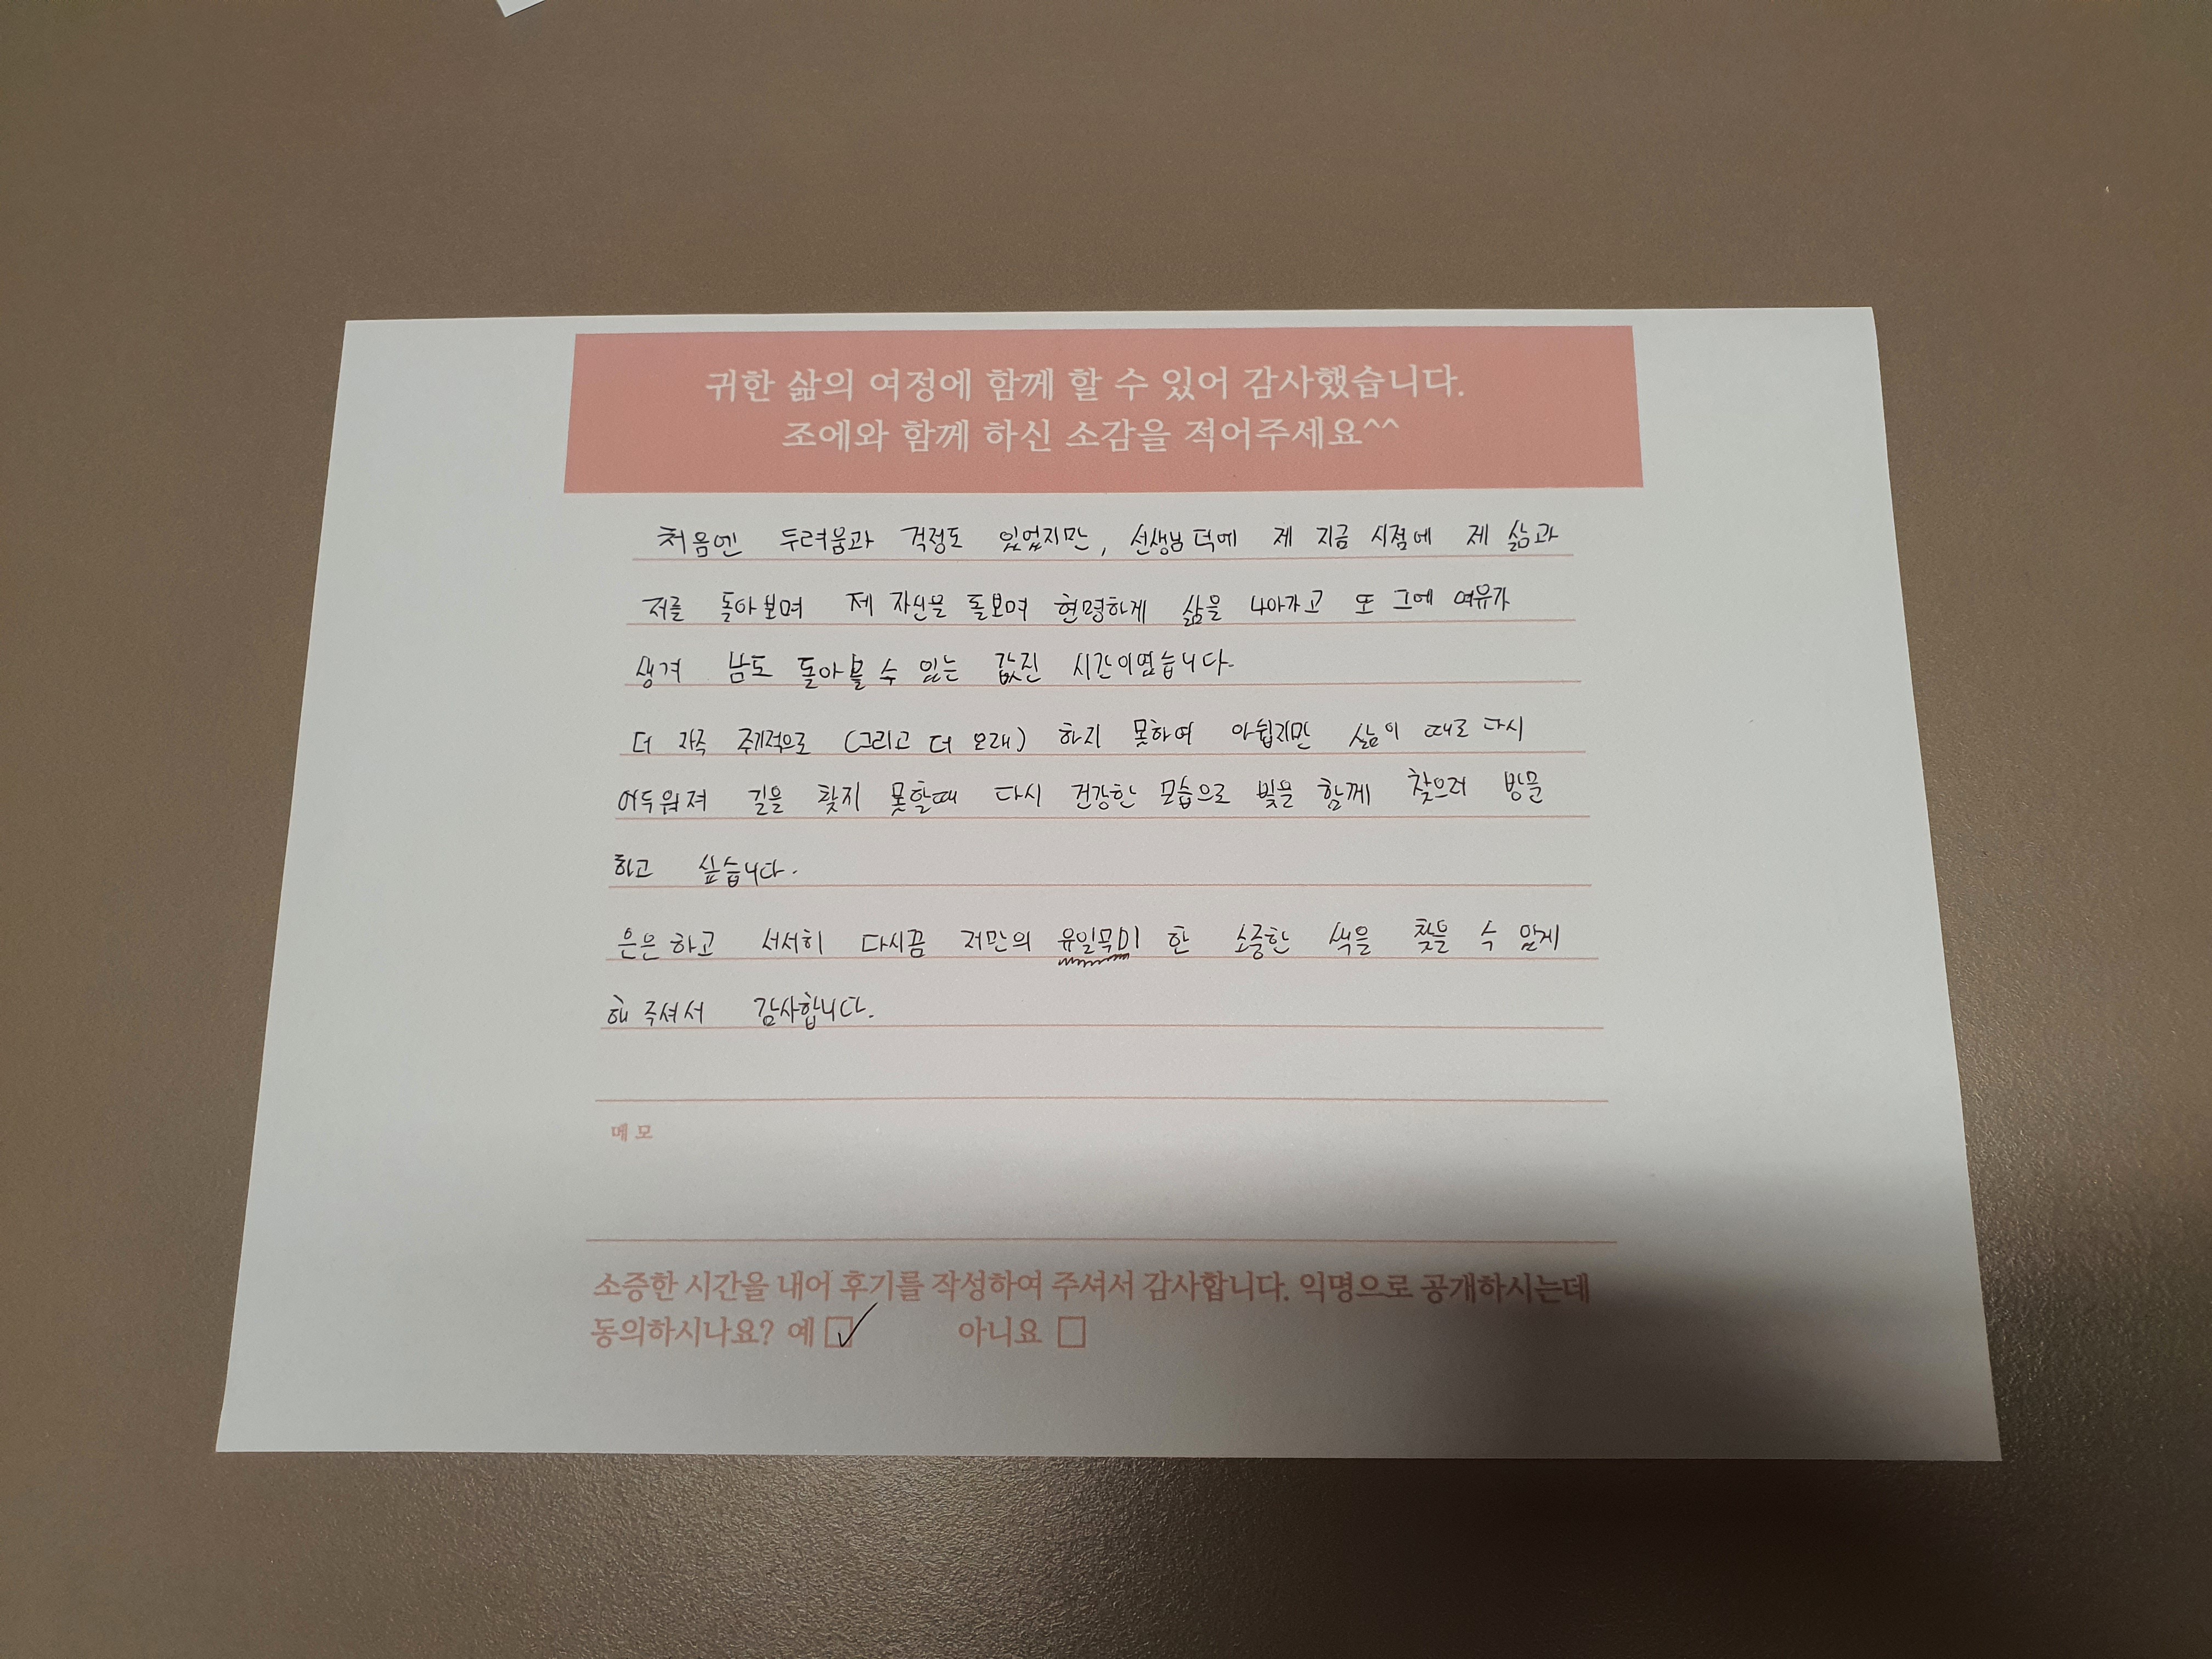 귀한 삶의 여정에 함께 할 수 있어 감사했습니다.
조에와 함께 하신 소감을 적어주세요^^
처음엔 두려움과 걱정도 있었지만, 선생님 덕에 제 지금 시점에 제 삶과
저를 돌아보며 제 자신을 돌보며 현명하게 삶을 나아가고 또 그에 여유가
생겨 남도 돌아볼 수 있는 값진 시간이였습니다.
더 자주 주기적으로 (그리고 더 오래) 하지 못하여 아쉽지만 삶이 때로 다시
어두워져 길을 찾지 못할때 다시 건강한 모습으로 빛을 함께 찾으러 방문
하고 싶습니다.
은은하고 서서히 다시끔 저만의 유일무이 한 소중한 색을 찾을 수 있게
해 주셔서 감사합니다.
메모
소중한 시간을 내어 후기를 작성하여 주셔서 감사합니다. 익명으로 공개하시는데
동의하시나요? 예 ☑ 아니요 ☐